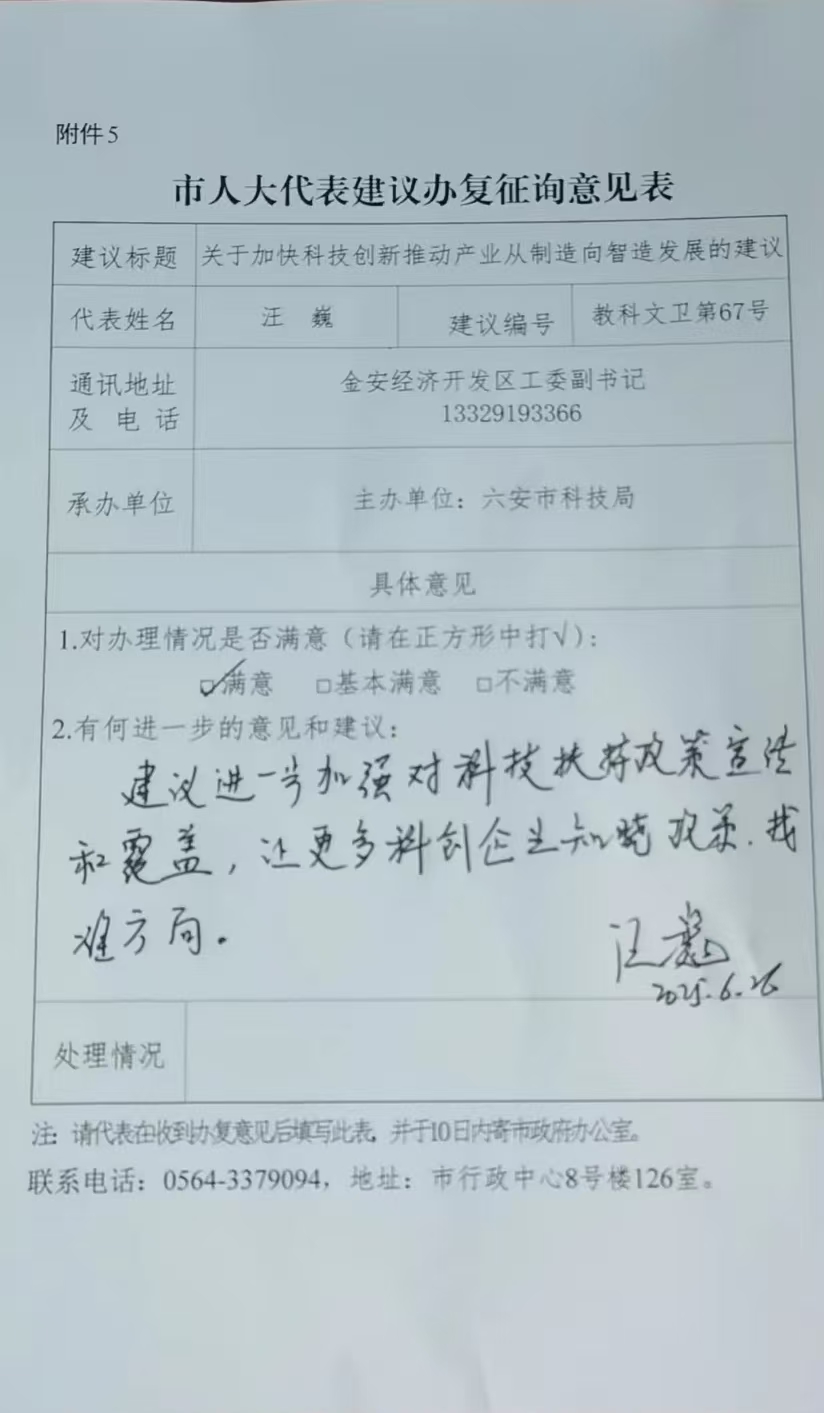 附件5
市人大代表建议办复征询意见表
建议标题 关于加快科技创新推动产业从制造向智造发展的建议
代表姓名 汪 巍 建议编号 教科文卫第67号
通讯地址 金安经济开发区工委副书记
及 电 话 13329193366
承办单位 主办单位：六安市科技局
具体意见
1.对办理情况是否满意（请在正方形中打√）：
☑满意 □基本满意 □不满意
2.有何进一步的意见和建议：
建议进一步加强对科技扶持政策宣传
和覆盖，让更多科创企业知晓政策、找
准方向。
汪巍
2025.6.26
处理情况
注：请代表在收到办复意见后填写此表，并于10日内寄市政府办公室。
联系电话：0564-3379094，地址：市行政中心8号楼126室。